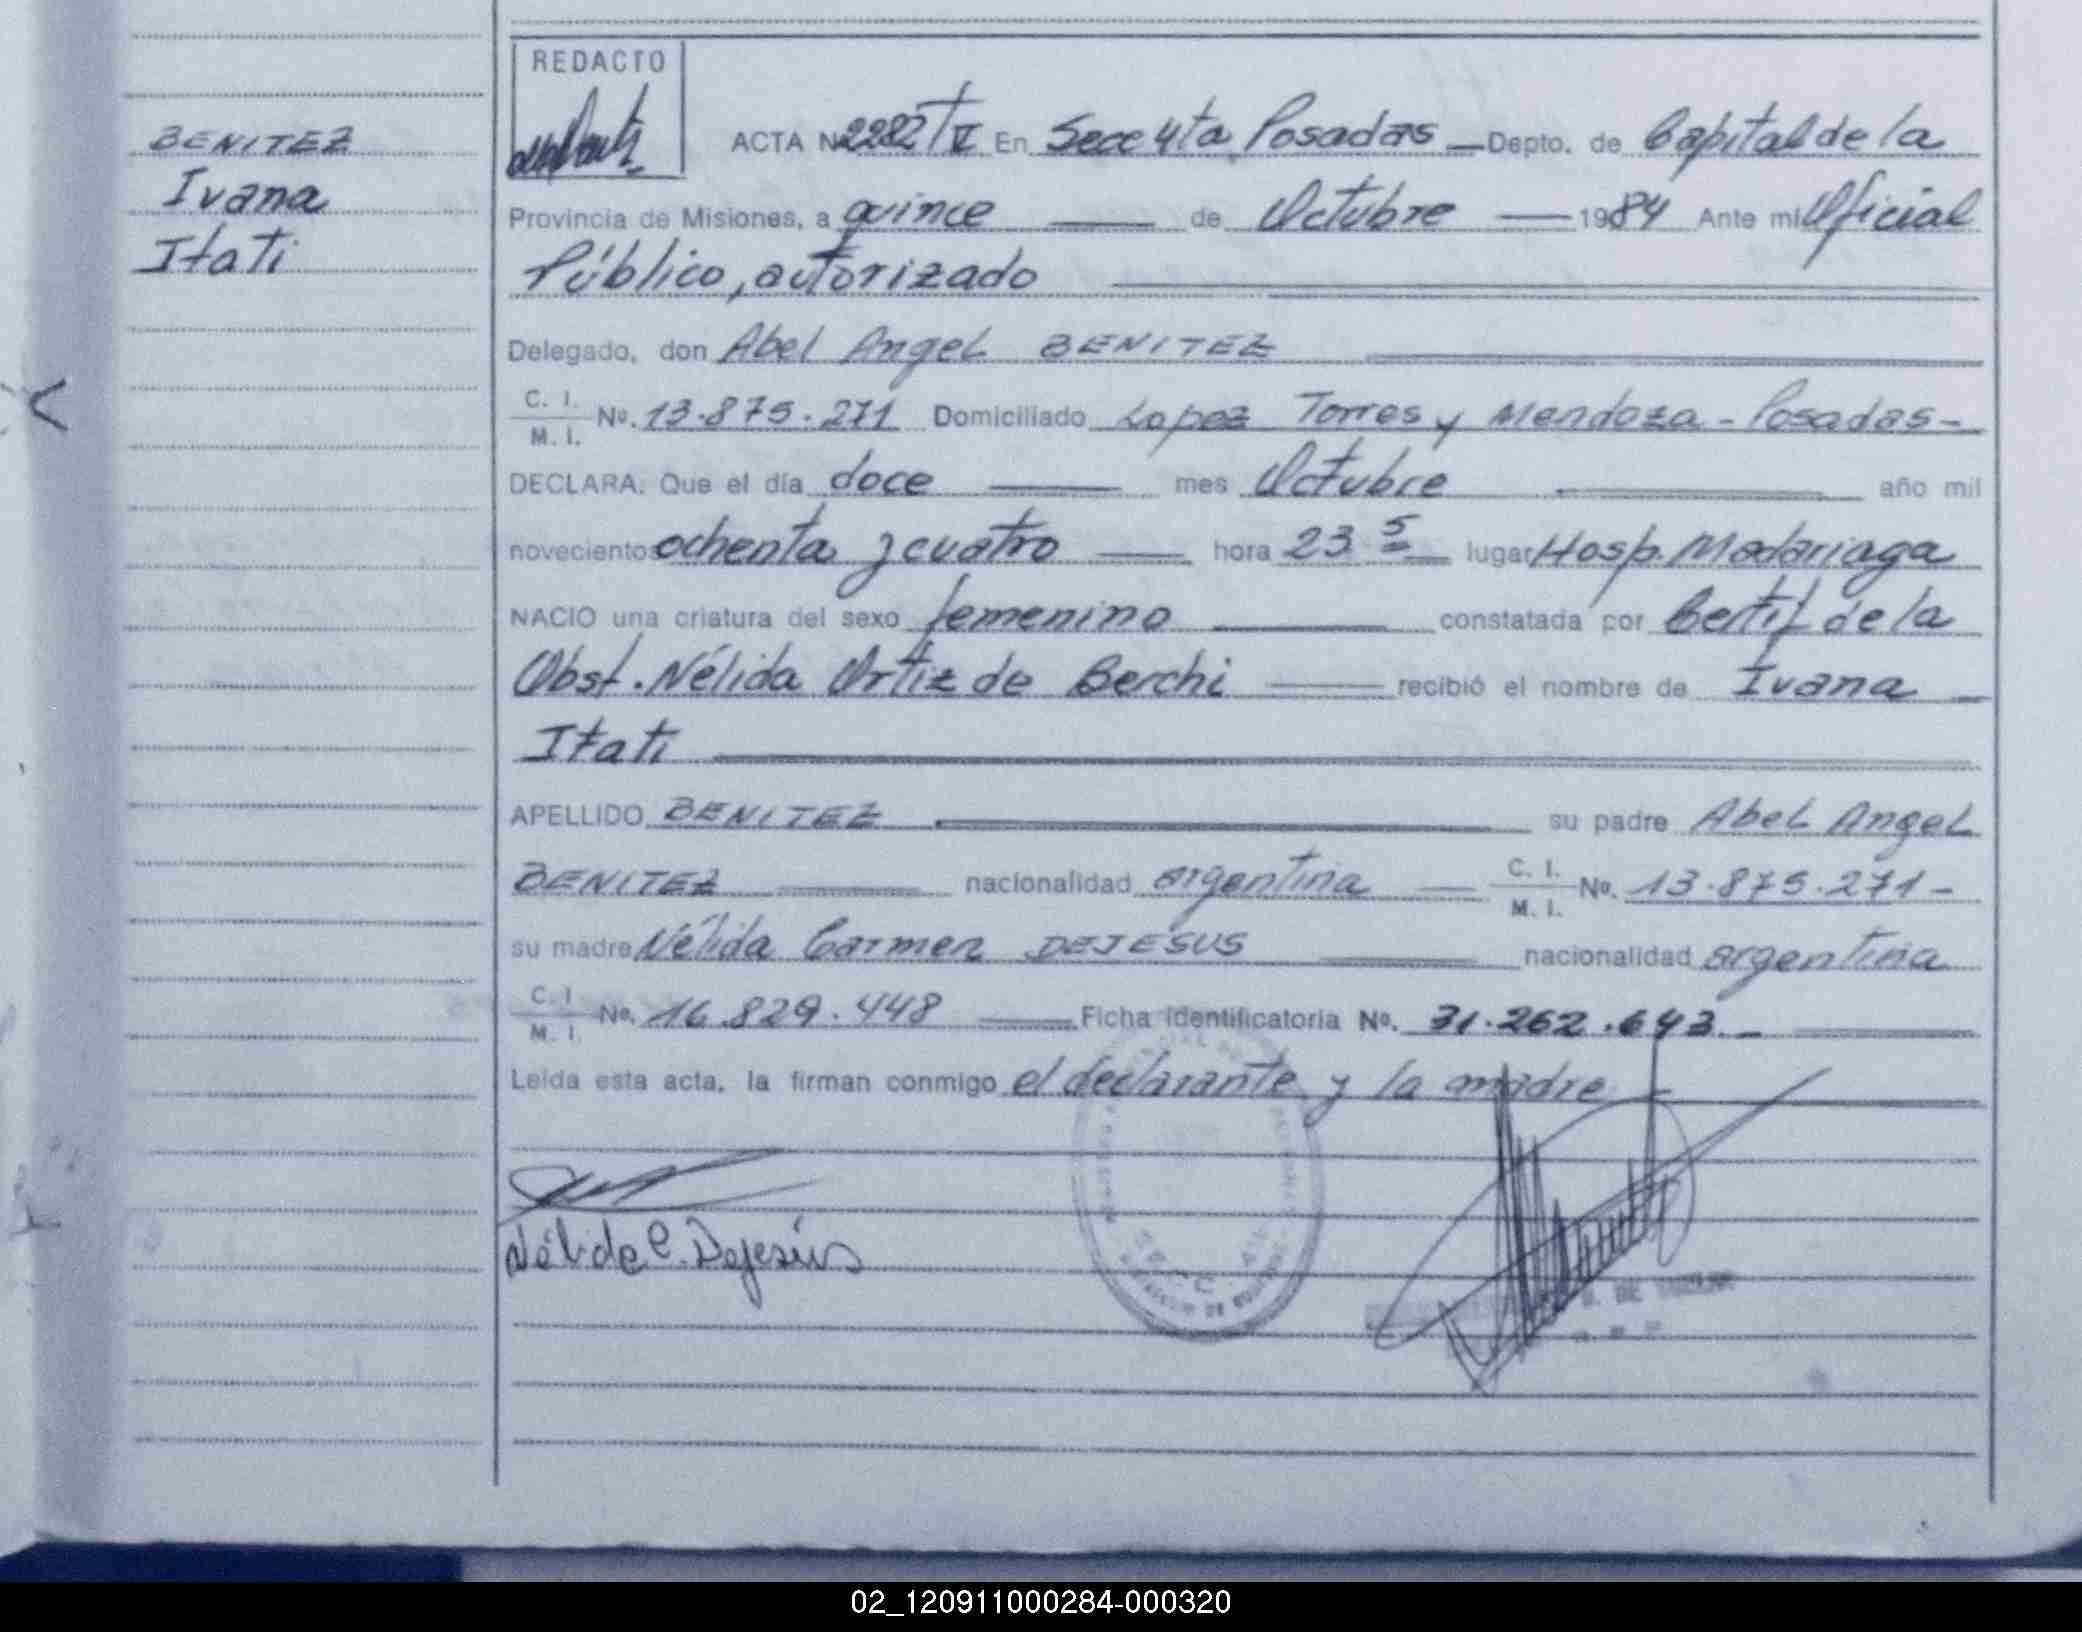 BENITEZ
Ivana
Itati
REDACTO
ACTA Nº 2282 T V En Secc 4ta Posadas — Depto. de Capital de la
Provincia de Misiones, a quince — de Octubre — 1984 Ante mi Oficial
Público, autorizado
Delegado, don Abel Angel BENITEZ
C. I. / M. I. Nº. 13.875.271 Domiciliado Lopez Torres y Mendoza - Posadas -
DECLARA: Que el día doce — mes Octubre — año mil
novecientos ochenta y cuatro — hora 23 5 — lugar Hosp. Madariaga
NACIO una criatura del sexo femenino — constatada por Certif de la
Obst. Nélida Ortiz de Berchi — recibió el nombre de Ivana —
Itati
APELLIDO BENITEZ — su padre Abel Angel
BENITEZ — nacionalidad argentina — C. I. / M. I. Nº. 13.875.271 -
su madre Nélida Carmen DEJESUS — nacionalidad argentina
C. I. / M. I. Nº. 16.829.448 — Ficha Identificatoria Nº. 31.262.643. —
Leída esta acta, la firman conmigo el declarante y la madre —
Nélida C. Dejesús
02_120911000284-000320